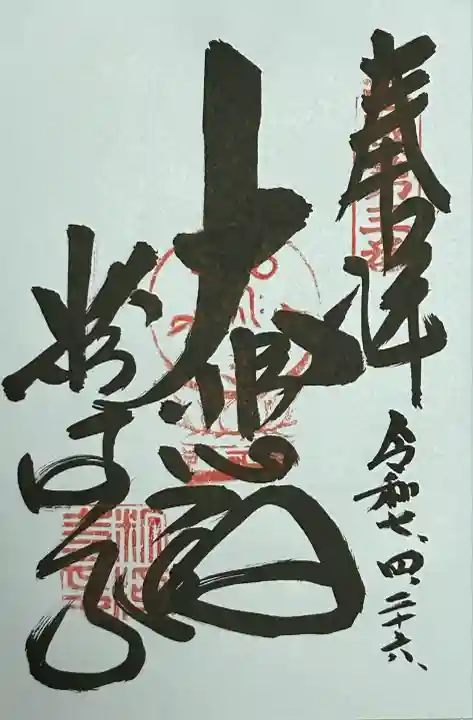 奉拝
大悲殿
粉河寺
令和七、四、二十六、